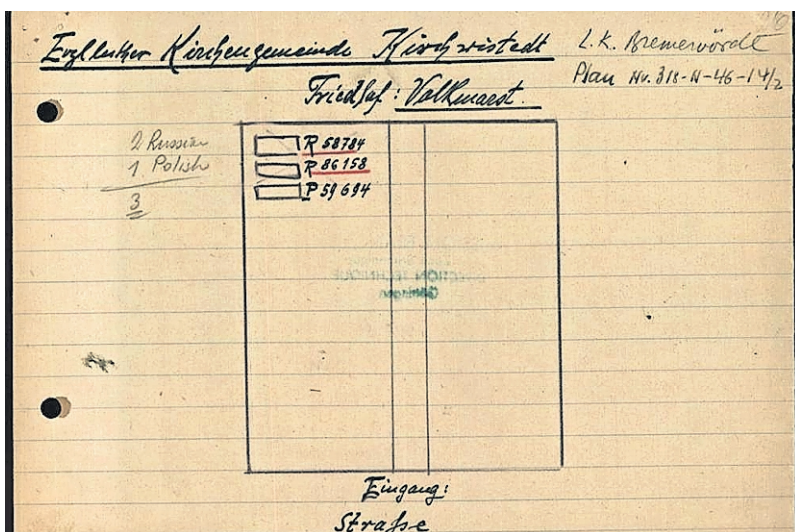 Evgl luther Kirchengemeinde Kirchwistedt
L.K. Bremervörde
Plan Nr. 318-N-46-14/2
Friedhof: Volkmarst.
2 Russian
1 Polish
3
R 58784
R 86158
P 59694
Eingang:
Straße